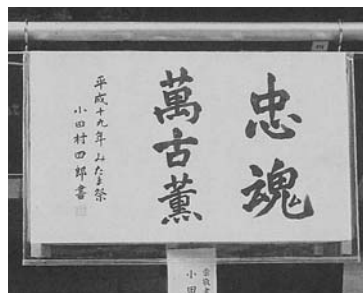 忠魂
萬古薫
平成十九年 みたま祭
小田村四郎書